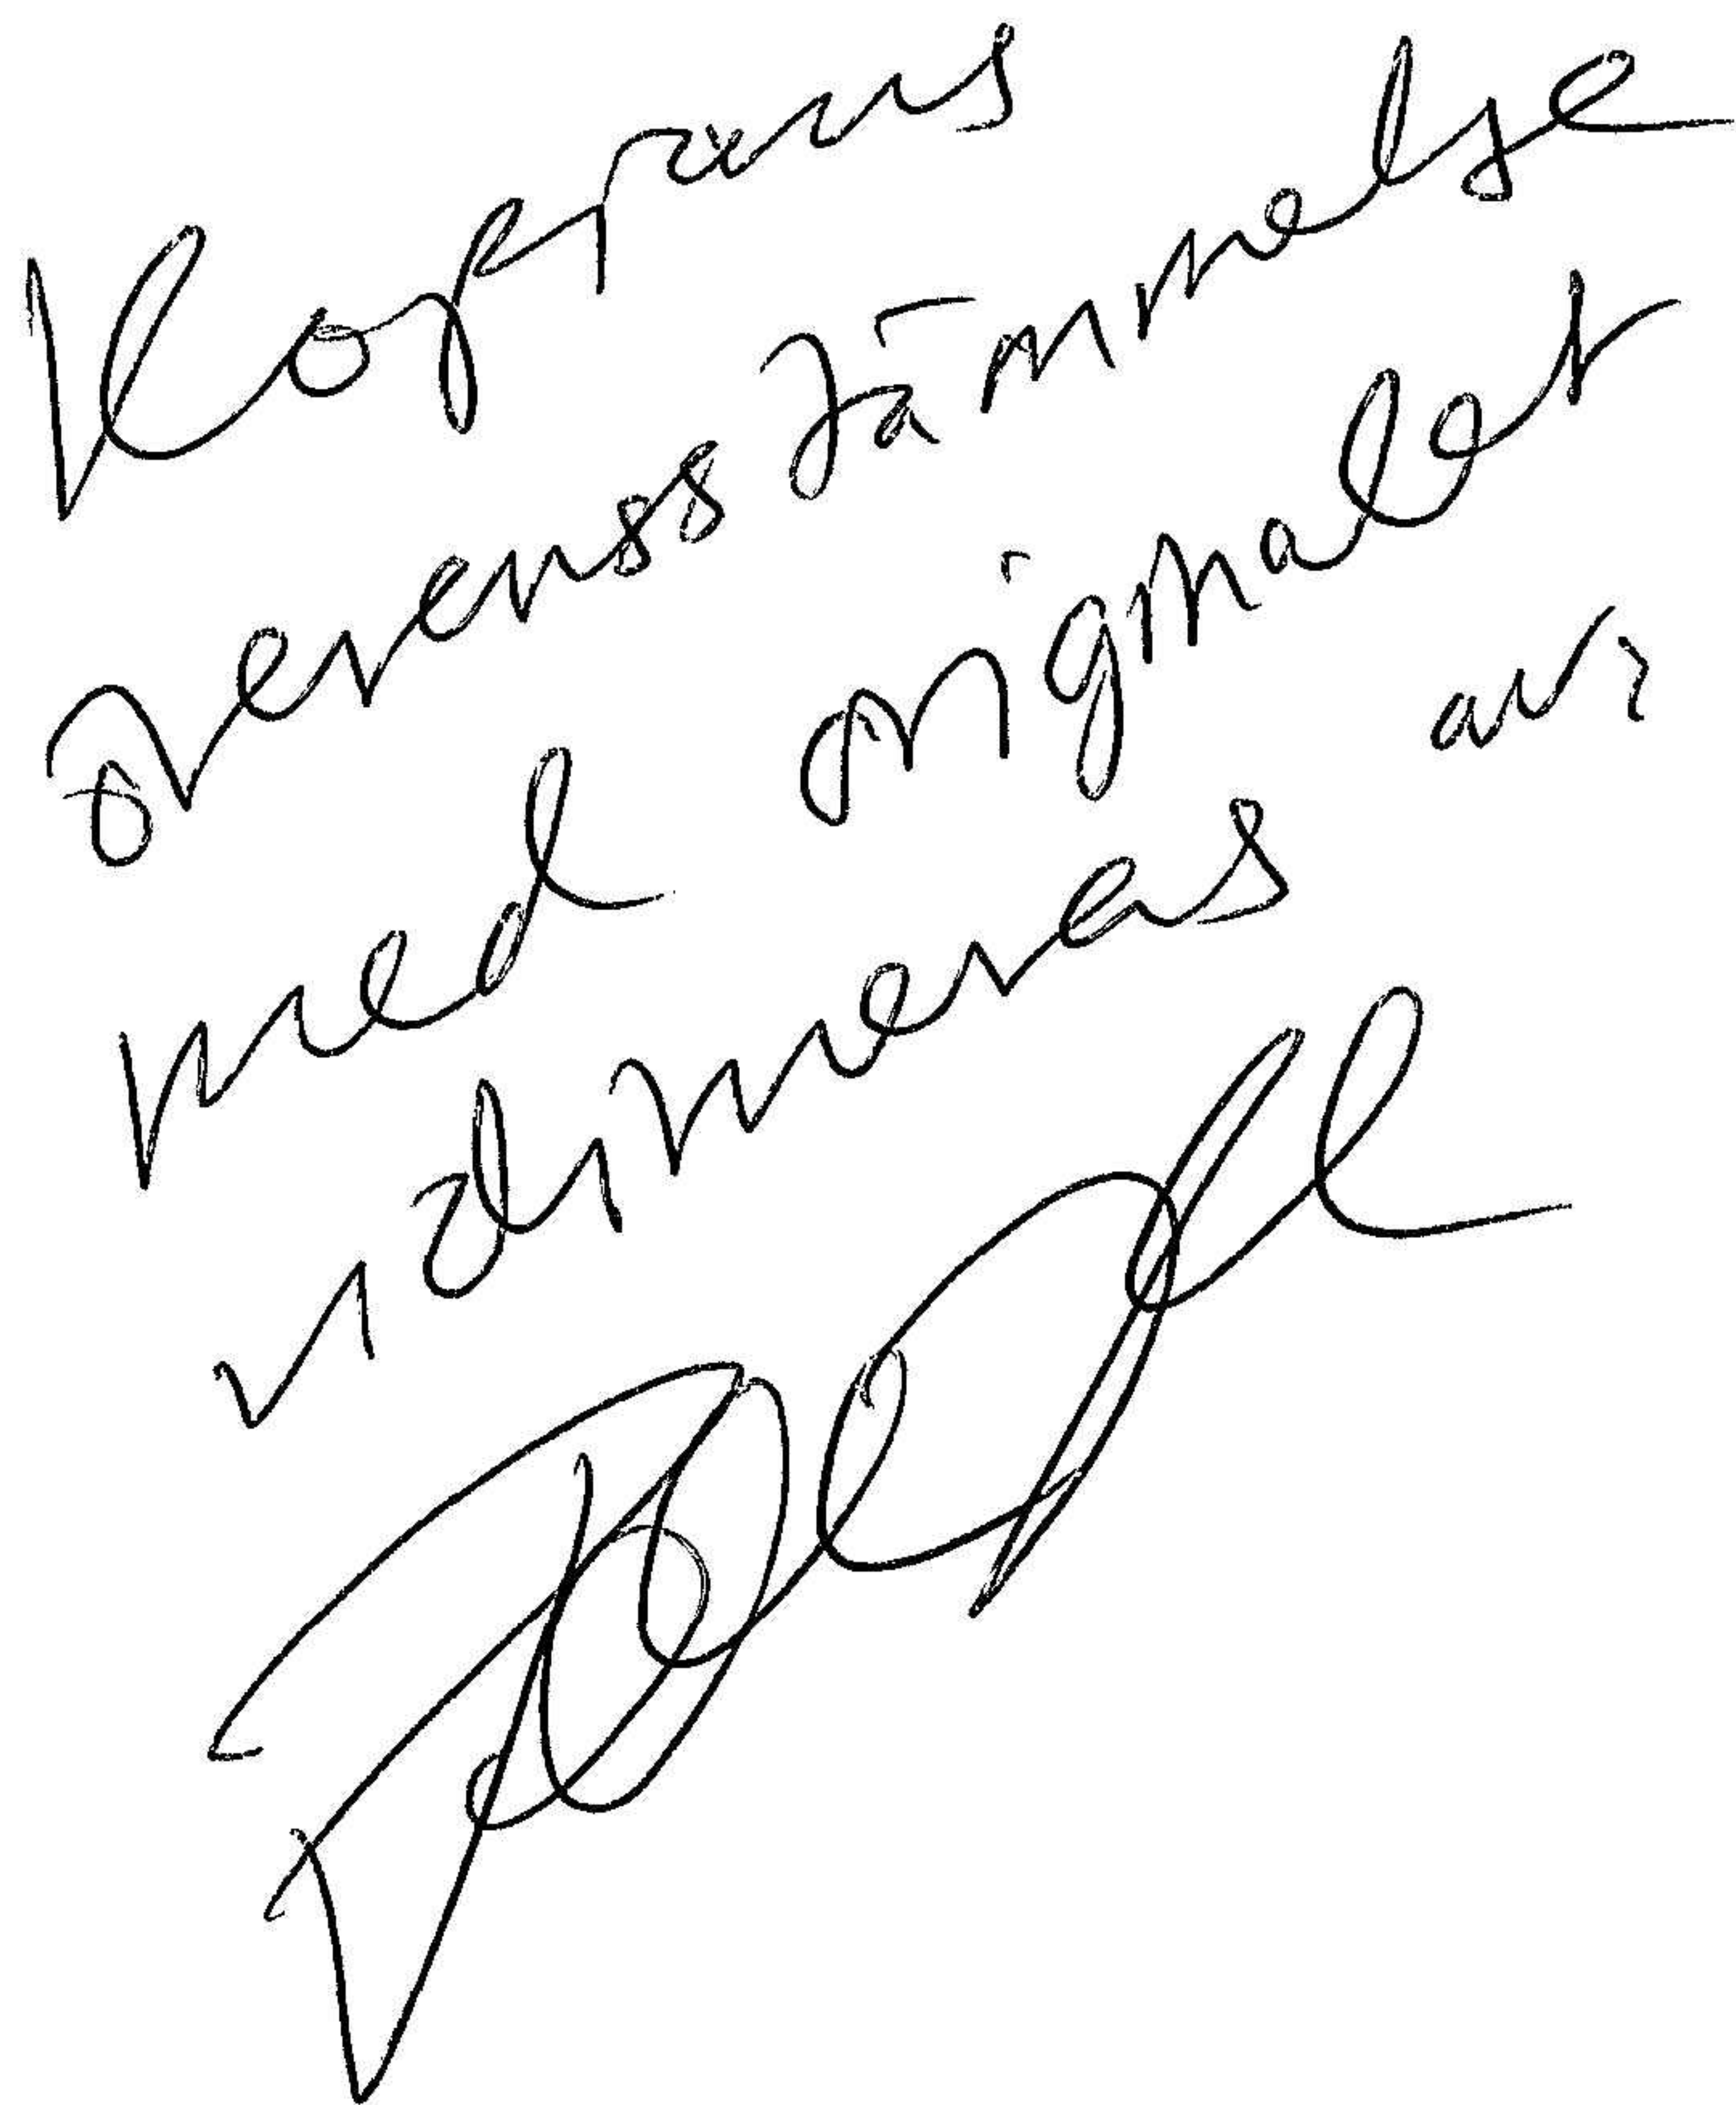 Kopians
överensstämmelse
med originalet
vidimeras av: